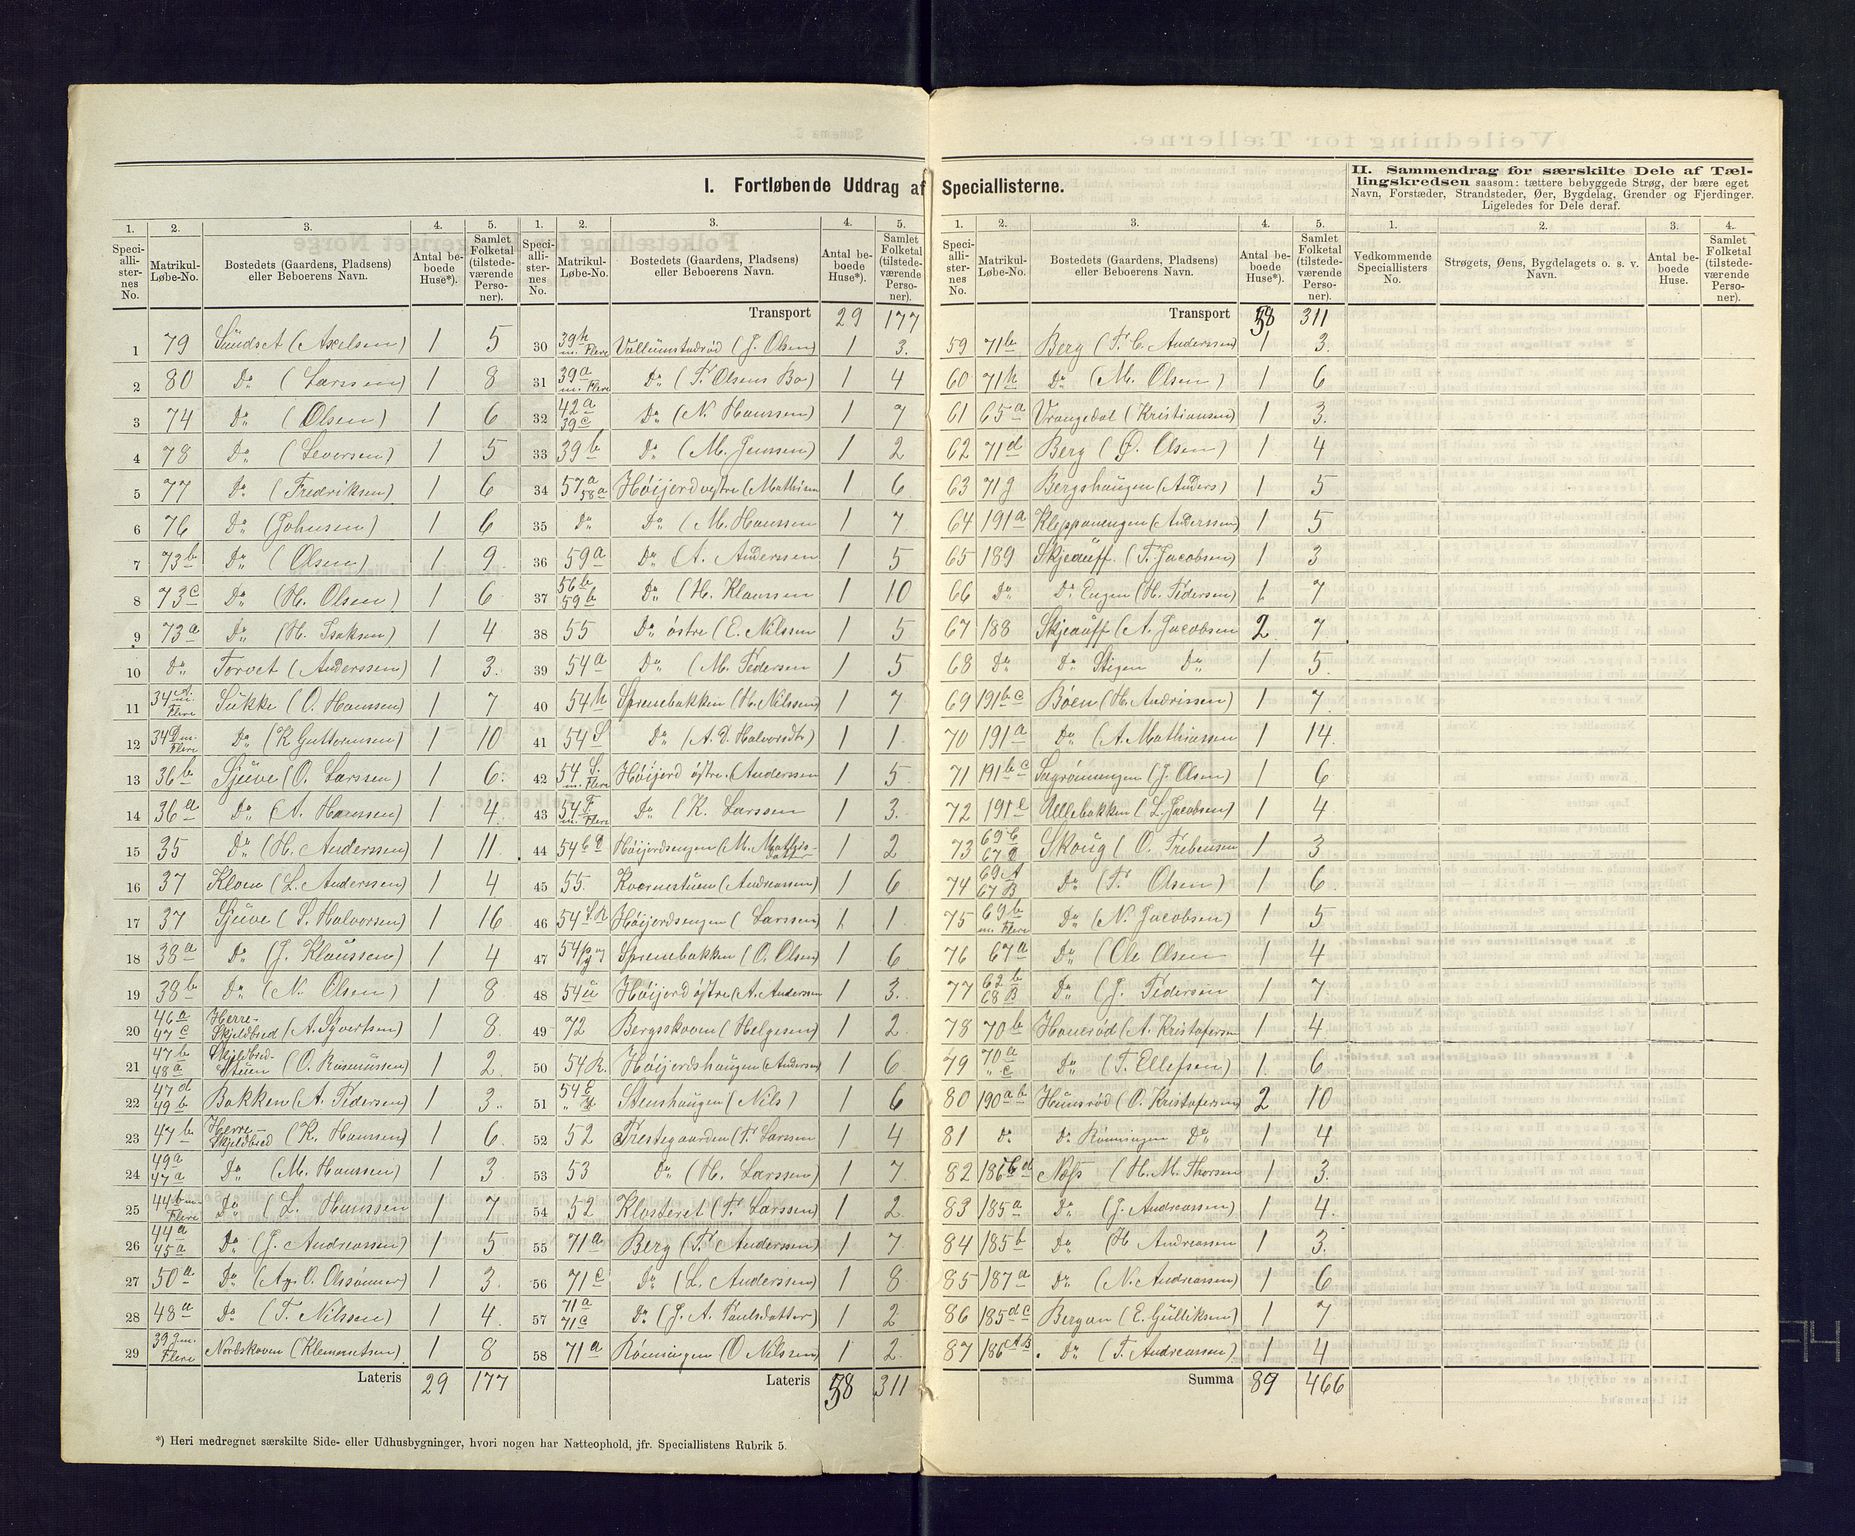 I. Fortløbende Uddrag af Speciallisterne.
II. Sammendrag for særskilte Dele af Tællingskredsen saasom: tættere bebyggede Strøg, der bære eget Navn, Forstæder, Strandsteder, Øer, Bygdelag, Grender og Fjerdinger. Ligeledes for Dele deraf.
1. 2. 3. 4. 5.
Speciallisternes No. Matrikul-Løbe-No. Bostedets (Gaardens, Pladsens) eller Beboerens Navn. Antal beboede Huse*). Samlet Folketal (tilstedeværende Personer).
1 79 Sundset (Axelsen) 1 5
2 80 Do (Larssen) 1 8
3 74 Do (Olsen) 1 6
4 78 Do (Seversen) 1 5
5 77 Do (Fredriksen) 1 6
6 76 Do (Johnsen) 1 6
7 73b Do (Olsen) 1 9
8 73c Do (H. Olsen) 1 6
9 73a Do (H. Isaksen) 1 4
10 Do Torvet (Anderssen) 1 3
11 34 m. Flere Sukke (O. Hanssen) 1 7
12 34 D m. Flere Do (K Guttormsen) 1 10
13 36b Sjuve (O. Larssen) 1 6
14 36a Do (A. Hanssen) 1 4
15 35 Do (H. Anderssen) 1 11
16 37 Kloen (L. Anderssen) 1 4
17 37 Sjuve (S. Halvorsen) 1 16
18 38a Do (J. Klaussen) 1 4
19 38b Do (N. Olsen) 1 8
20 46a 47c Herre-Skjeldbred (A. Syvertsen) 1 8
21 47b 48a Skjeldbred-Stuen (O. Rasmussen) 1 2
22 47d 49b Bakken (A. Pedersen) 1 3
23 47b Herre-Skjeldbred (K. Hanssen) 1 6
24 49a 47a Do (M. Hanssen) 1 3
25 44b m. Flere Do (L. Hanssen 1 7
26 44a 45a Do (J. Andreassen) 1 5
27 50a Do (Ag. O. Olsønner) 1 3
28 48a Do (T. Nilssen) 1 4
29 39 g m. Flere Nordskoven (Klemmetsen) 1 8
Lateris 29 177
*) Heri medregnet særskilte Side- eller Udhusbygninger, hvori nogen har Natteophold, jfr. Speciallistens Rubrik 5.
1. 2. 3. 4. 5.
Speciallisternes No. Matrikul-Løbe-No. Bostedets (Gaardens, Pladsens) eller Beboerens Navn. Antal beboede Huse*). Samlet Folketal (tilstedeværende Personer).
Transport 29 177
30 39h m. Flere Vallumstadrød (J. Olsen) 1 3
31 39a m. Flere Do (T. Olsens Bo) 1 4
32 42a 39c Do (N. Hanssen) 1 7
33 39b Do (M. Jenssen) 1 2
34 57a 58a Høijord vestre (Mathias 1 6
35 Do Do (M. Hanssen 1 7
36 59a Do (A. Anderssen 1 5
37 56b 59b Do (H. Klaussen 1 10
38 55 Do østre (E. Nilssen 1 5
39 54a Do (M. Pedersen 1 5
40 54h Sprenebakken (H. Nilssen) 1 7
41 54 S Do (A. D. Halvorsdtr) 1 1
42 54 S. m. Flere Høijord østre (Anderssen 1 5
43 54 F. m. Flere Do (K. Larssen 1 3
44 54 Høijordsengen (M. Mathisdatter 1 2
45 55. Kvernestuen (Andreassen) 1 6
46 54 Høijordsengen (Larssen) 1 1
47 54 Sprenebakken (O. Olsen) 1 6
48 54u Høijord østre (A. Anderssen 1 3
49 72 Bergsskoven (Helgesen) 1 2
50 54 R. Høijordshaugen (Anderssen) 1 6
51 54 Stenshaugen (Nils) 1 6
52 52 Prestegaarden (T. Larssen 1 4
53 53 Do (H. Larssen) 1 7
54 52 Klosteret (T. Larssen) 1 2
55 71a Berg (T. Anderssen) 1 7
56 71c Do (L. Anderssen) 1 8
57 71a 71c Do (J. A. Paulsdatter) 1 2
58 71a Rønningen (O Nilssen) 1 2
Lateris 58 311
1. 2. 3. 4. 5.
Speciallisternes No. Matrikul-Løbe-No. Bostedets (Gaardens, Pladsens) eller Beboerens Navn. Antal beboede Huse*). Samlet Folketal (tilstedeværende Personer).
Transport 58 311
59 71b Berg (T. C. Anderssen) 1 3
60 71h Do (M. Olsen) 1 6
61 65a Vrangedal (Kristiansen) 1 3
62 71d Berg (Ø. Olsen) 1 4
63 71g Bergshaugen (Anders) 1 5
64 191a Kleppanengen (Anderssen) 1 5
65 189 Skjeauff (T. Jacobsen) 1 3
66 Do Do Engen (H. Pedersen) 1 7
67 188 Skjeauff (A. Jacobsen 2 7
68 Do Do Stigen Do 1 5
69 191b c Bøen (H. Andrissen) 1 7
70 191a Do (A. Mathiassen 1 14
71 191b c Sagrønningen (J. Olsen) 1 6
72 191c Ullebakken (L. Jacobsen) 1 4
73 69 67 Skoug (O. Prebensen 1 3
74 69A 67B Do (T. Olsen) 1 6
75 69b m. Flere Do (N. Jacobsen) 1 5
76 67a Do (Ole Olsen 1 4
77 62b 68B Do (J. Pedersen 1 7
78 70b Hanerød (A. Kristofersen 1 4
79 70a " c Do (T. Ellefsen) 1 6
80 190a b Hunsrød (O. Kristofersen) 2 10
81 Do Do Rønningen Do 1 4
82 186b d Næss (H. M. Thorsen 1 3
83 185a Do (J. Andreassen) 1 4
84 185b Do (H. Andreassen 1 3
85 187a Do (N. Andreassen) 1 6
86 185d c Bergan (E. Gulliksen) 1 7
87 186 A B Do (T. Andreassen) 1 4
Summa 89 466
1. 2. 3. 4.
Vedkommende Speciallisters No. Strøgets, Øens, Bygdelagets o. s. v. Navn. Antal beboede Huse. Samlet Folketal (tilstedeværende Personer).